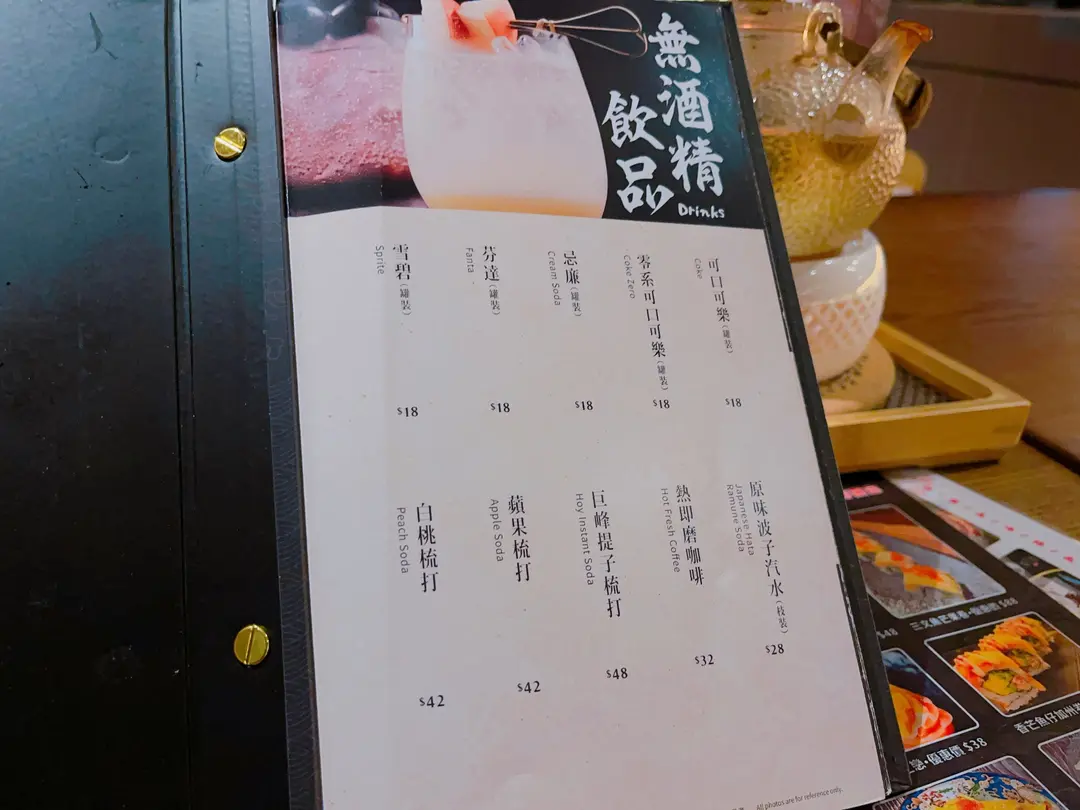 無酒精
飲品
Drinks
可口可樂（罐裝）
Coke
$18
零系可口可樂（罐裝）
Coke Zero
$18
忌廉（罐裝）
Cream Soda
$18
芬達（罐裝）
Fanta
$18
雪碧（罐裝）
Sprite
$18
原味波子汽水（枝裝）
Japanese Hata
Ramune Soda
$28
熱即磨咖啡
Hot Fresh Coffee
$32
巨峰提子梳打
Hoy Instant Soda
$48
蘋果梳打
Apple Soda
$42
白桃梳打
Peach Soda
$42
All photos are for reference only.
$48
$88
香芒魚仔加州
優惠價 $38